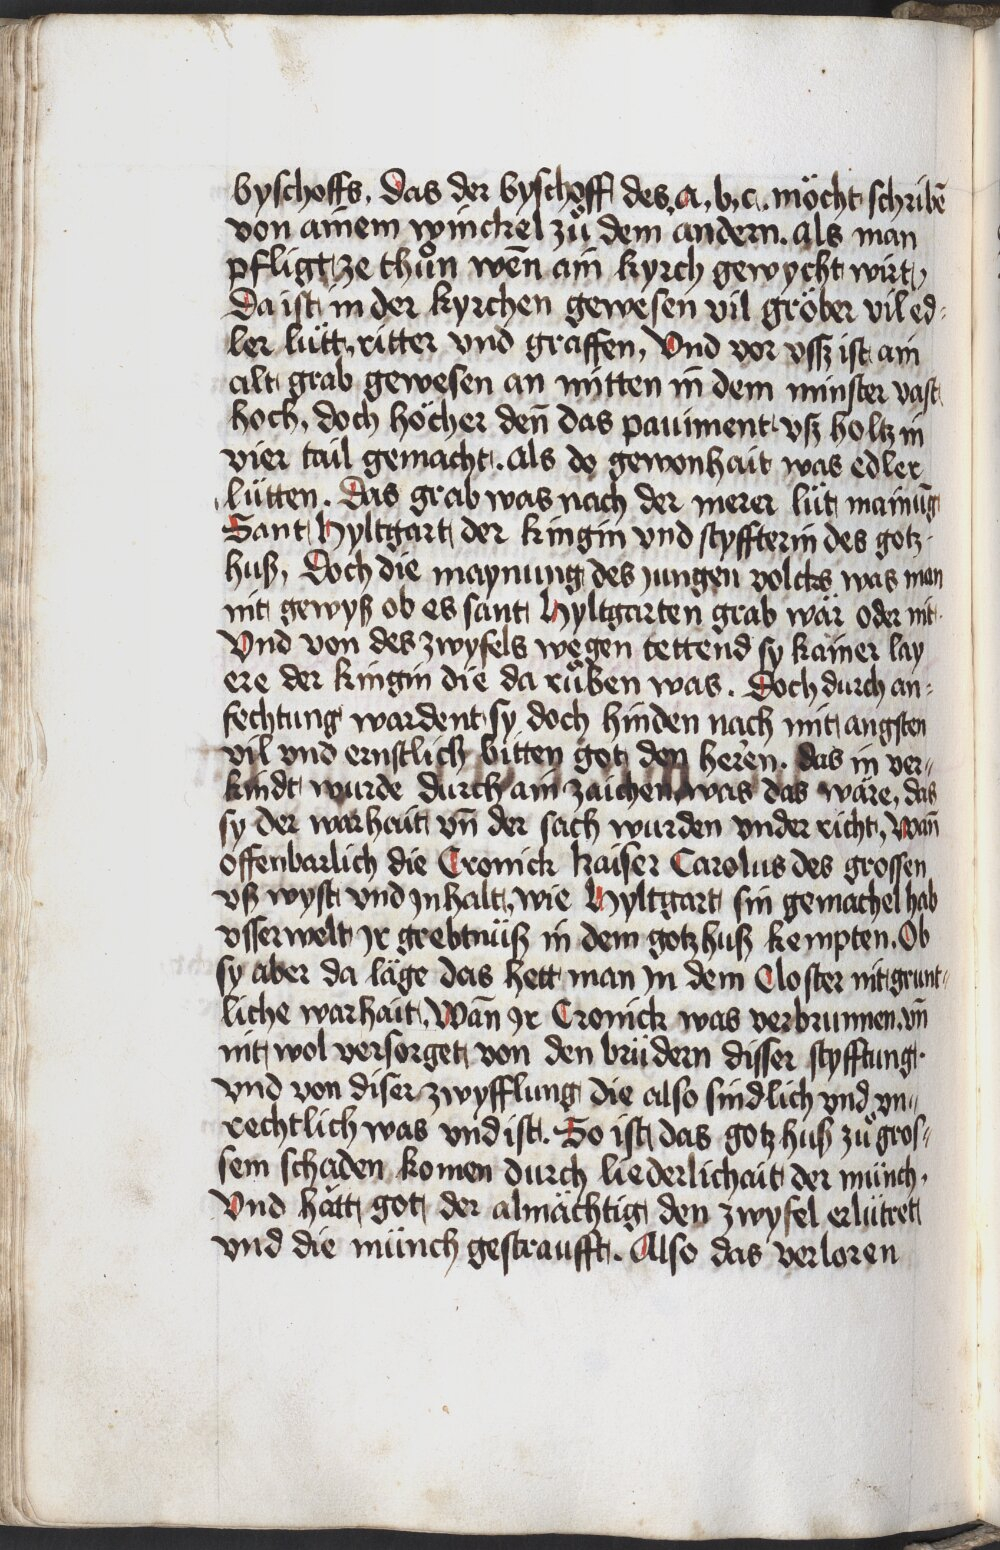 byschoffs. Das der byschoff des. a. b. c. möcht schribē
von ainem winckel zů dem andern. als man
pfligt ze thůn wen̄ ain kyrch gewycht wirt,
Da ist in der kyrchen gewesen vil gröber vil ed⸗
ler lütt, ritter vnd graffen, Vnd vor vssz ist ain
alt grab gewesen an mitten in dem minster vast
hoch, doch höcher den̄ das pauiment vsz holtz in
vier tail gemacht. als do gewonhait was edler
lütten. Das grab was nach der merer lüt mainūg
Sant Hyltgart der kingin vnd styffterin des gotz⸗
husz, Doch die maynung des jungen volcks was man
nit gewysz ob es sant Hyltgarten grab wär oder nit.
Vnd von des zwyfels wegen tettend sy kainer lay
ere der kingin die da růben was. Doch durch an⸗
fechtung wardent sy doch hinden nach mit angsten
vil vnd ernstlich bitten got den heren. das in ver⸗
kindt wurde durch ain zaichen was das wäre, das
sy der warhait vn̄ der sach wurden vnder richt, Wan̄
offenbarlich die Cronick kaiser Carolus des grossen
vsz wyst vnd jnhalt, wie Hyltgart sin gemachel hab
vsserwelt jr grebtnüsz in dem gotzhusz kempten. Ob
sy aber da läge das hett man jn dem Closter nit grunt⸗
liche warhait, Wan̄ jr Cronick was verbrunnen. vn̄
nit wol versorget von den brüdern disser styfftung.
vnd von diser zwyfflung die also sindlich vnd vn⸗
rechtlich was vnd ist. So ist das gotzhusz zů gros⸗
sem schaden komen durch liederlichait der münch,
Vnd hätt got der almächtig den zwyfel erlütret
vnd die münch gestraufft. Also das verloren